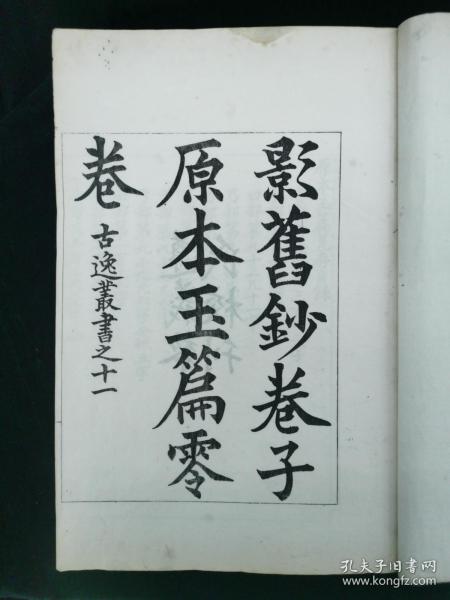 影舊鈔卷子
原本玉篇零
卷
古逸叢書之十一
孔夫子旧书网
www.kongfz.com